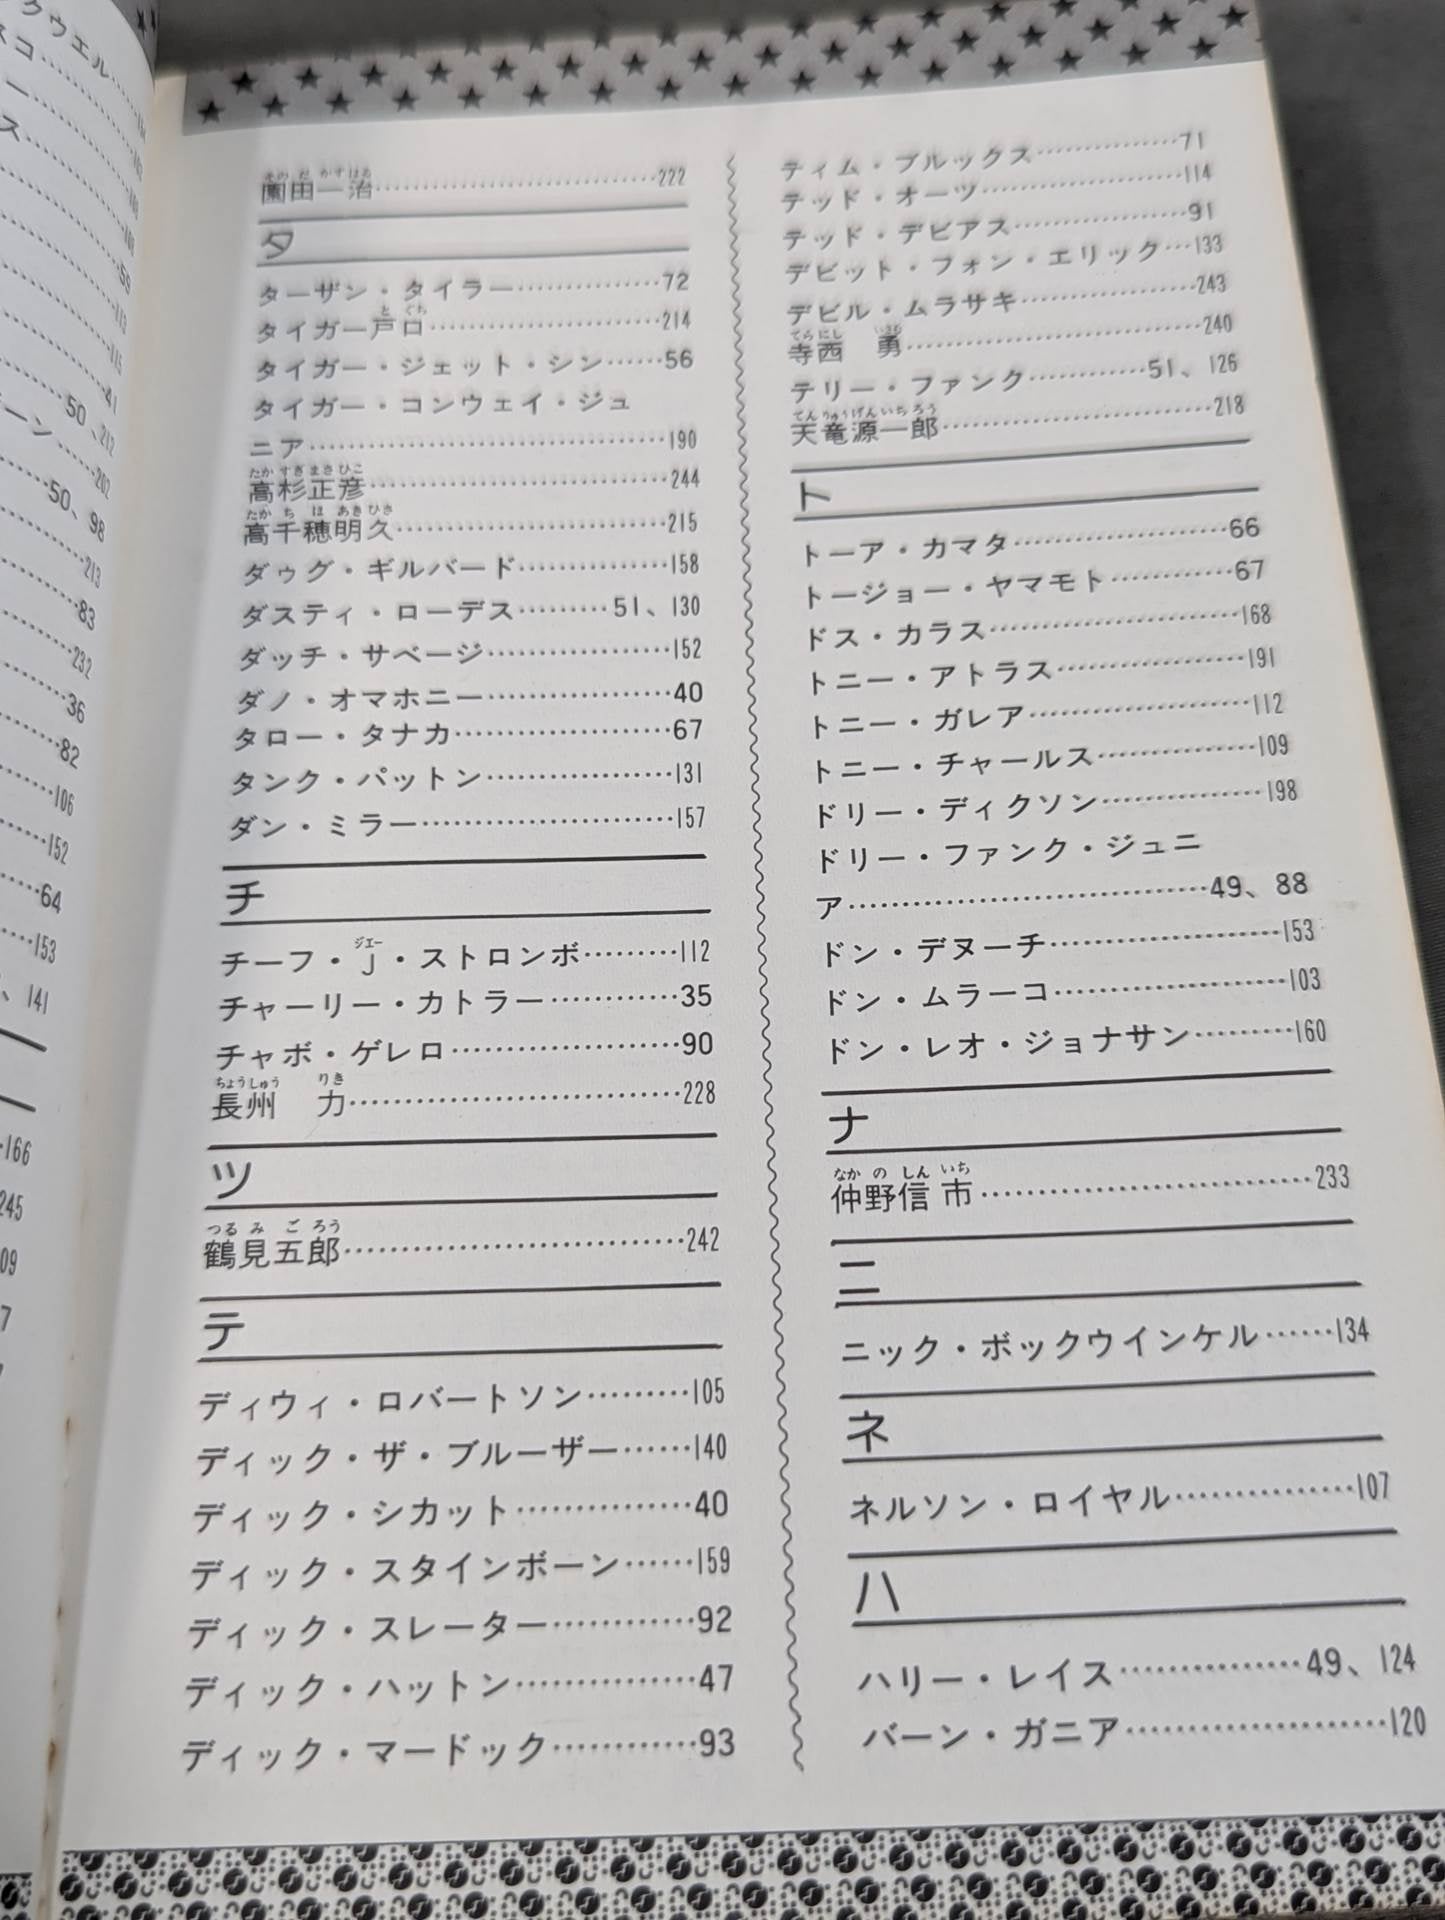 クウエル
スコ
ー
ス
59
113
115
41
50、212
ーン
202
50、98
213
83
232
36
82
106
152
64
153
、141
166
245
09
7
園田一治 222
タ
ターザン・タイラー 72
タイガー戸口 214
タイガー・ジェット・シン 56
タイガー・コンウェイ・ジュ
ニア 190
高杉正彦 244
高千穂明久 215
ダゥグ・ギルバード 158
ダスティ・ローデス 51、130
ダッチ・サベージ 152
ダノ・オマホニー 40
タロー・タナカ 67
タンク・パットン 131
ダン・ミラー 157
チ
チーフ・J・ストロンボ 112
チャーリー・カトラー 35
チャボ・ゲレロ 90
長州 力 228
ツ
鶴見五郎 242
テ
ディウィ・ロバートソン 105
ディック・ザ・ブルーザー 140
ディック・シカット 40
ディック・スタインボーン 159
ディック・スレーター 92
ディック・ハットン 47
ディック・マードック 93
ティム・ブルックス 71
テッド・オーツ 114
テッド・デビアス 91
デビット・フォン・エリック 133
デビル・ムラサキ 243
寺西 勇 240
テリー・ファンク 51、126
天竜源一郎 218
ト
トーア・カマタ 66
トージョー・ヤマモト 67
ドス・カラス 168
トニー・アトラス 191
トニー・ガレア 112
トニー・チャールス 109
ドリー・ディクソン 198
ドリー・ファンク・ジュニ
ア 49、88
ドン・デヌーチ 153
ドン・ムラーコ 103
ドン・レオ・ジョナサン 160
ナ
仲野信市 233
ニ
ニック・ボックウインケル 134
ネ
ネルソン・ロイヤル 107
ハ
ハリー・レイス 49、124
バーン・ガニア 120